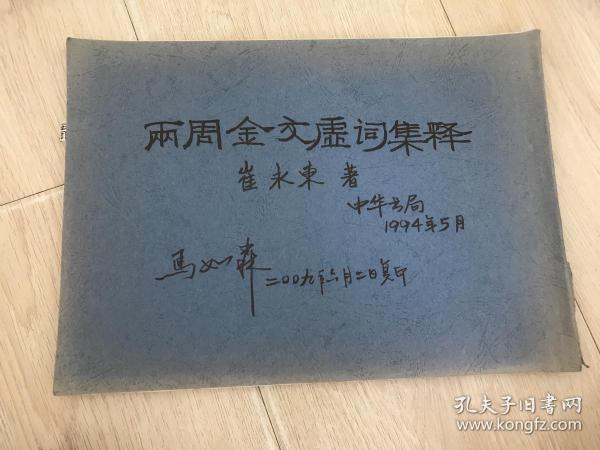 兩周金文虛词集释
崔永東 著
中华书局
1994年5月
馬如森
二00九年六月二日复印
孔夫子旧书网
www.kongfz.com